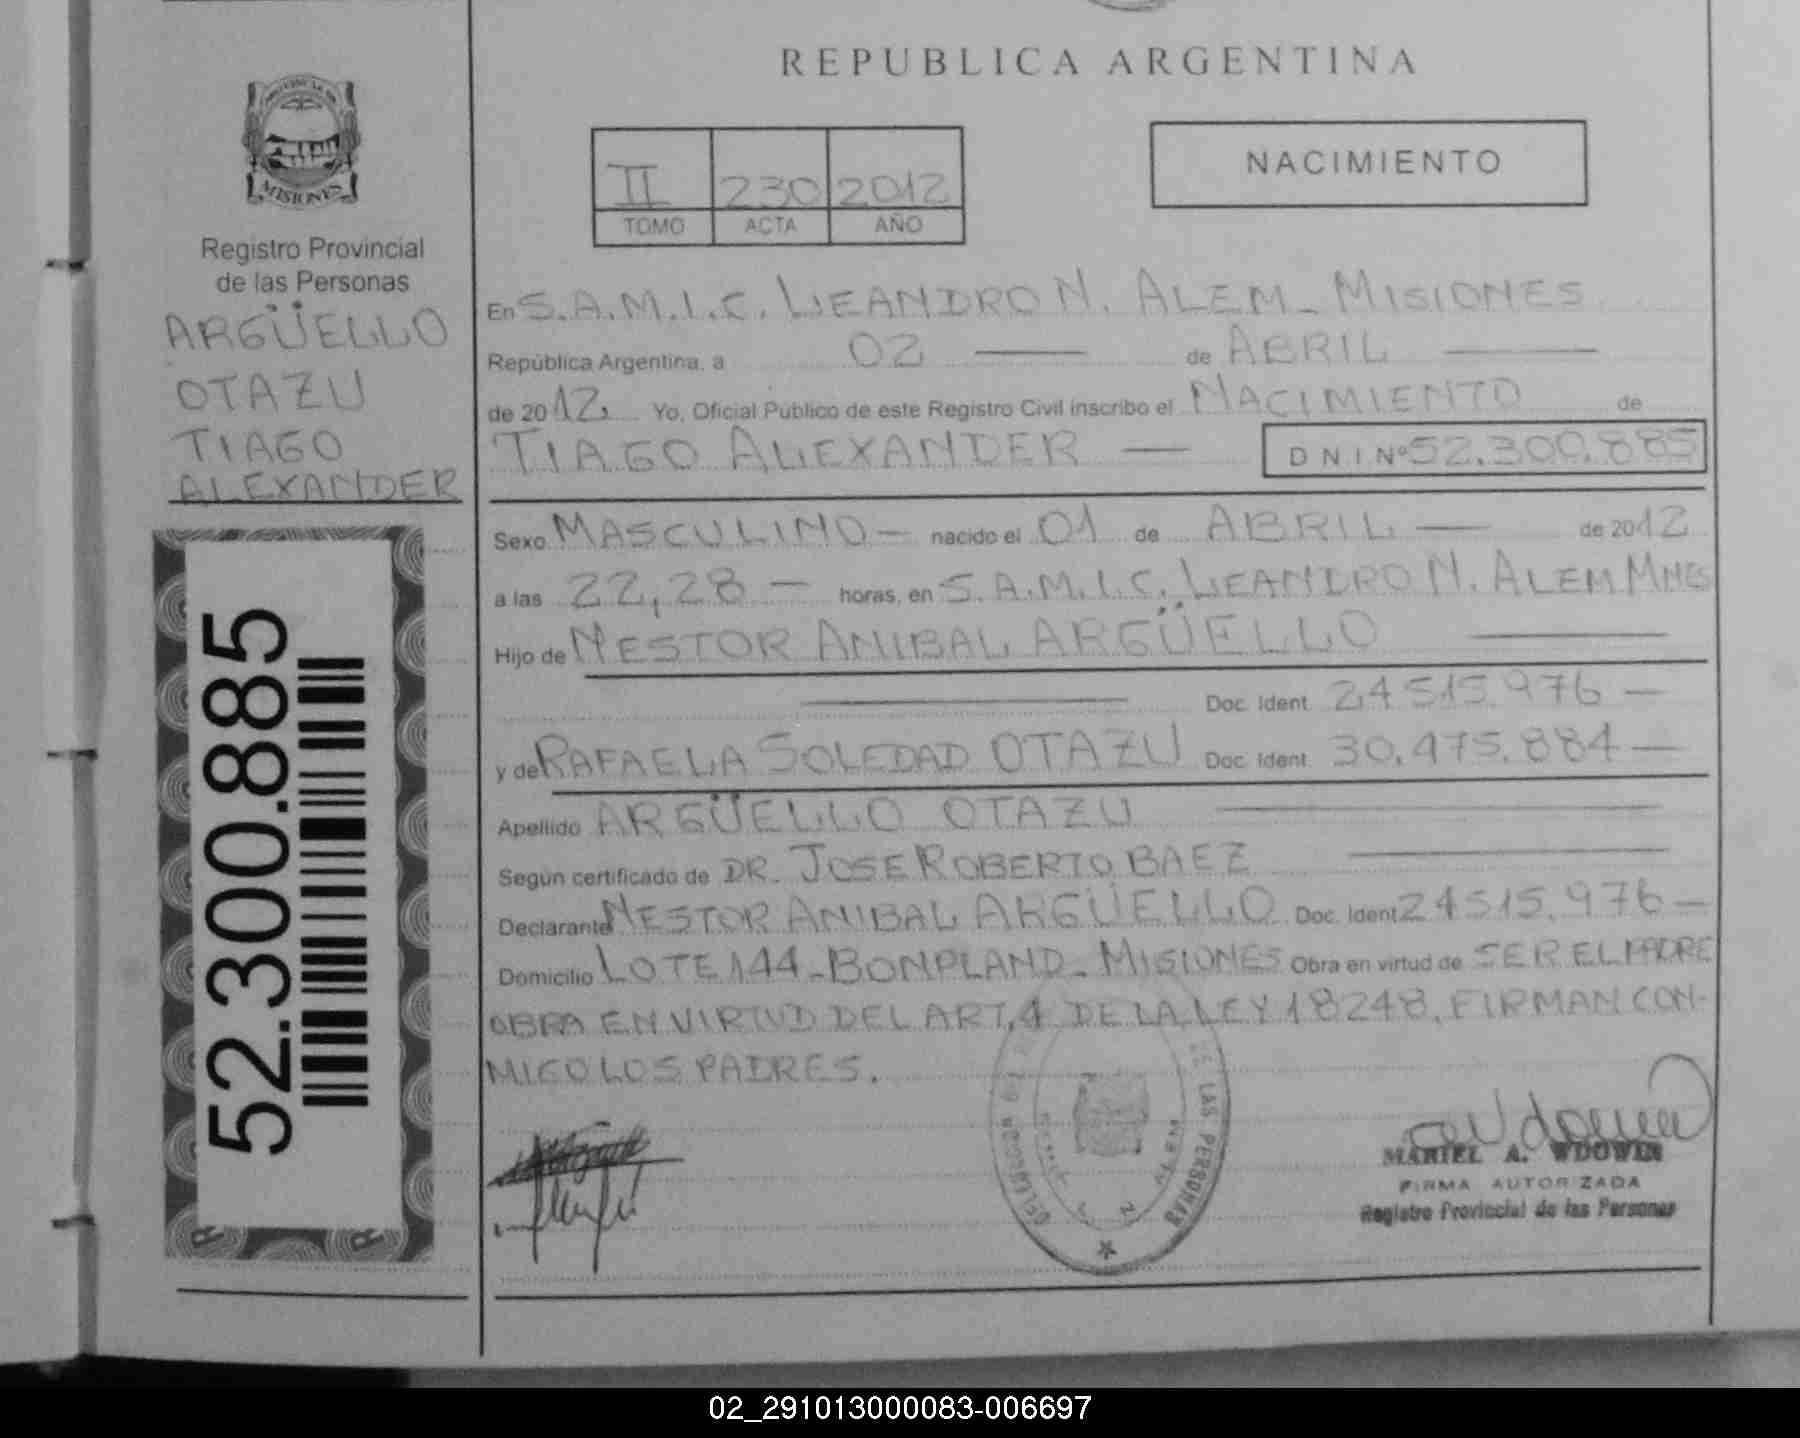 REPUBLICA ARGENTINA
PROVINCIA DE
MISIONES
Registro Provincial
de las Personas
ARGÜELLO
OTAZU
TIAGO
ALEXANDER
52.300.885
II 230 2012
TOMO ACTA AÑO
NACIMIENTO
En S.A.M.I.C. LEANDRO N. ALEM - MISIONES
República Argentina, a 02 — de ABRIL —
de 2012. Yo, Oficial Público de este Registro Civil inscribo el NACIMIENTO de
TIAGO ALEXANDER — D N I Nº 52.300.885
Sexo MASCULINO — nacido el 01 de ABRIL — de 2012
a las 22,28 — horas, en S.A.M.I.C. LEANDRO N. ALEM MNES
Hijo de NESTOR ANIBAL ARGÜELLO —
— Doc. Ident. 24.515.976 —
y de RAFAELA SOLEDAD OTAZU Doc. Ident. 30.475.884 —
Apellido ARGÜELLO OTAZU —
Según certificado de DR. JOSE ROBERTO BAEZ —
Declarante NESTOR ANIBAL ARGÜELLO Doc. Ident 24515.976 —
Domicilio LOTE 144 - BONPLAND - MISIONES Obra en virtud de SER EL PADRE
OBRA EN VIRTUD DEL ART, 4 DE LA LEY 18248. FIRMAN CON-
MIGO LOS PADRES.
DE LAS PERSONAS
MARIEL A. WDOWIN
FIRMA AUTORIZADA
Registro Provincial de las Personas
02_291013000083-006697